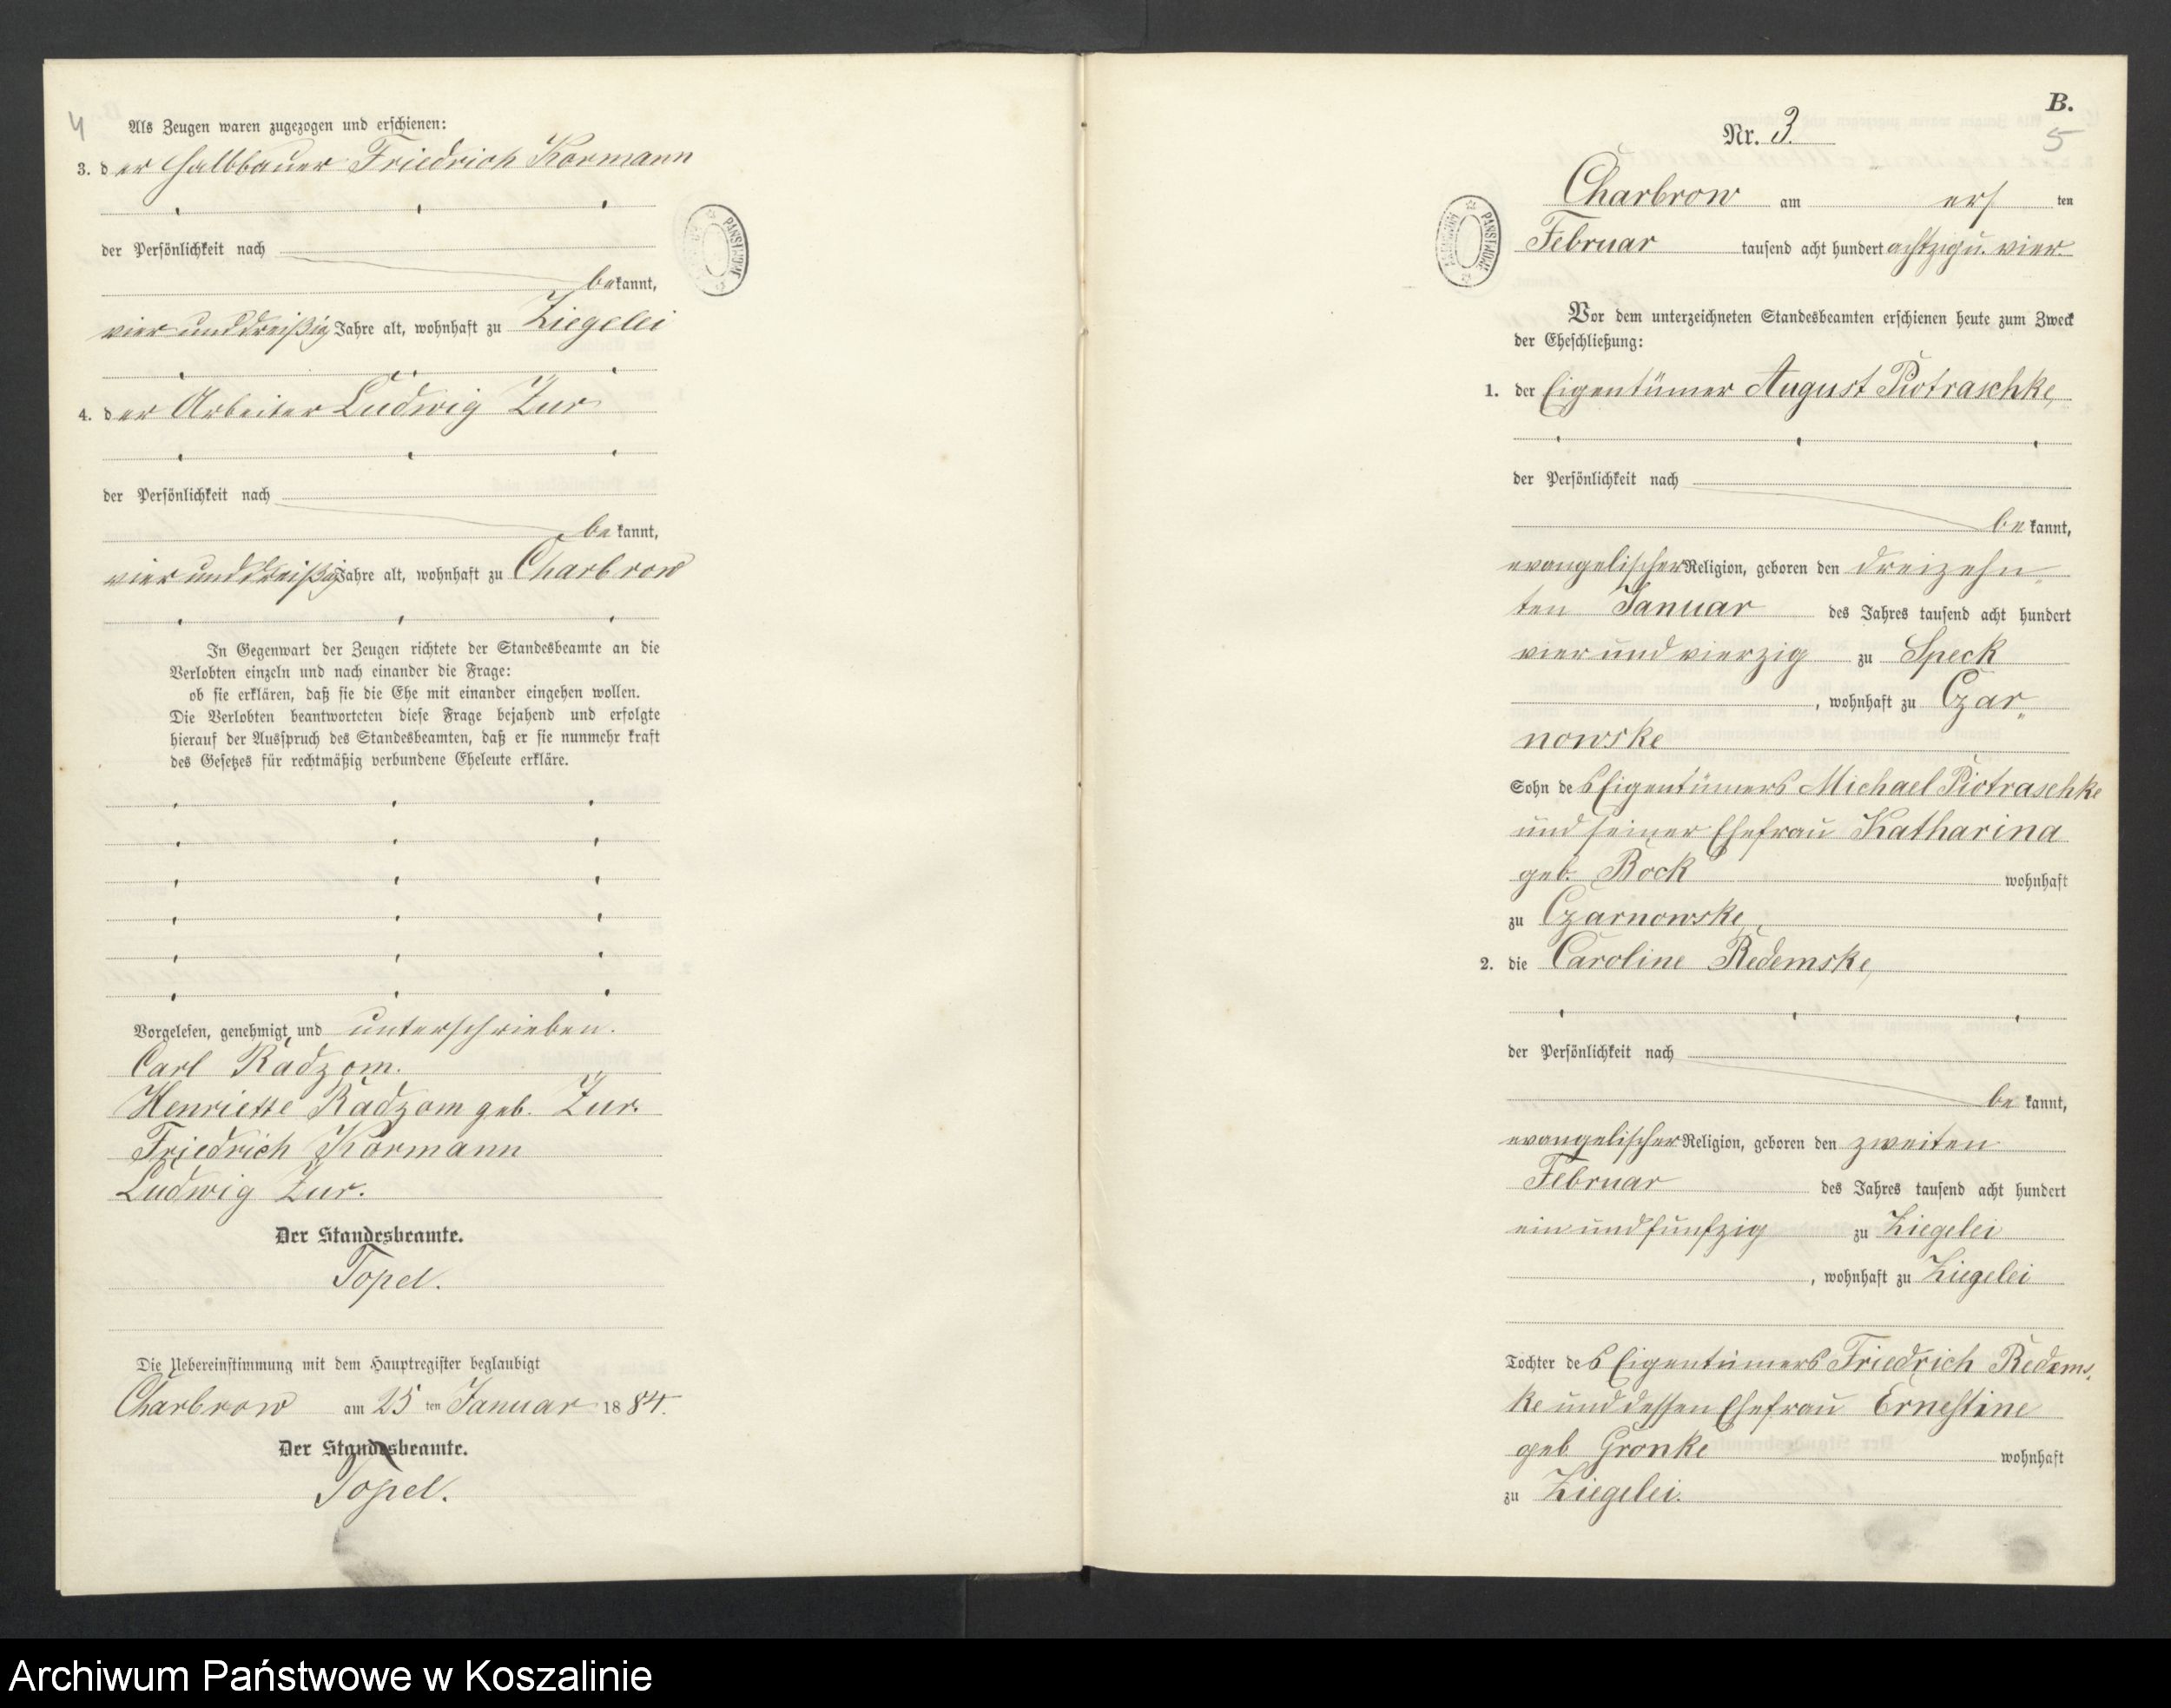 4
Als Zeugen waren zugezogen und erschienen:
3. der Halbbauer Friedrich Kormann
der Persönlichkeit nach
bekannt,
vier und dreißig Jahre alt, wohnhaft zu Ziegelei
4. der Arbeiter Ludwig Zur
der Persönlichkeit nach
bekannt,
vier und dreißig Jahre alt, wohnhaft zu Charbrow
In Gegenwart der Zeugen richtete der Standesbeamte an die
Verlobten einzeln und nach einander die Frage:
ob sie erklären, daß sie die Ehe mit einander eingehen wollen.
Die Verlobten beantworteten diese Frage bejahend und erfolgte
hierauf der Ausspruch des Standesbeamten, daß er sie nunmehr kraft
des Gesetzes für rechtmäßig verbundene Eheleute erkläre.
Vorgelesen, genehmigt und unterschrieben.
Carl Radzom.
Henriette Radzom geb. Zur.
Friedrich Kormann
Ludwig Zur.
Der Standesbeamte.
Topel.
Die Uebereinstimmung mit dem Hauptregister beglaubigt
Charbrow am 25 ten Januar 1884.
Der Standesbeamte.
Topel.
PAŃSTWOWE
B.
5
Nr. 3.
Charbrow am ers ten
Februar tausend acht hundert achtzig u. vier
ARCHIWUM PAŃSTWOWE
Vor dem unterzeichneten Standesbeamten erschienen heute zum Zweck
der Eheschließung:
1. der Eigentümer August Piotraschke,
der Persönlichkeit nach
bekannt,
evangelischer Religion, geboren den dreizehn„
ten Januar des Jahres tausend acht hundert
vier und vierzig zu Speck
, wohnhaft zu Czar„
nowske
Sohn des Eigentümers Michael Piotraschke
und seiner Ehefrau Katharina
geb. Bock wohnhaft
zu Czarnowske,
2. die Caroline Redemske,
der Persönlichkeit nach
bekannt,
evangelischer Religion, geboren den zweiten
Februar des Jahres tausend acht hundert
ein und funfzig zu Ziegelei
, wohnhaft zu Ziegelei
Tochter des Eigentümers Friedrich Redems„
ke und dessen Ehefrau Ernestine
geb Gronke wohnhaft
zu Ziegelei.
Archiwum Państwowe w Koszalinie